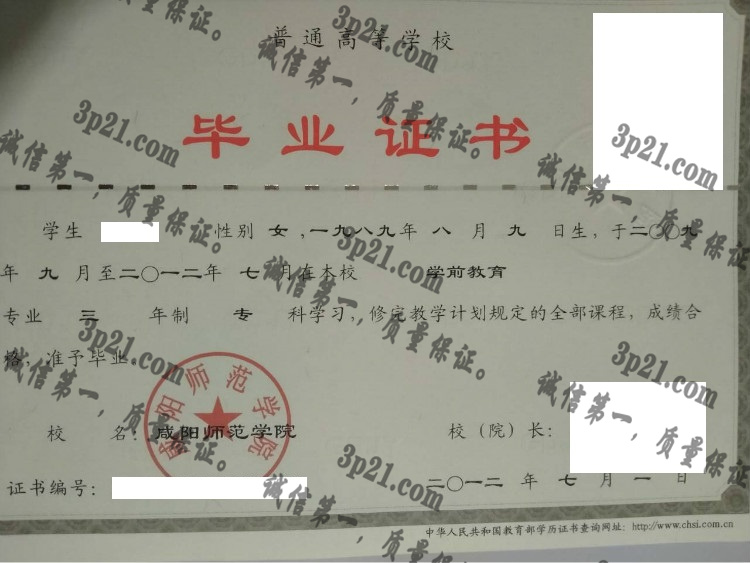 普通高等学校
毕业证书
学生 性别 女，一九八九年 八 月 九 日生，于二〇〇九
年 九 月至二〇一二年 七 月在本校 学前教育
专业 三 年制 专 科学习，修完教学计划规定的全部课程，成绩合
格，准予毕业
咸阳师范学院
校 名：咸阳师范学院 校（院）长：
证书编号： 二〇一二 年 七 月 一 日
中华人民共和国教育部学历证书查询网址：http://www.chsi.com.cn
3p21.com
诚信第一，质量保证。
3p21.com
诚信第一，质量保证。
3p21.com
诚信第一，质量保证。
3p21.com
诚信第一，质量保证。
3p21.com
诚信第一，质量保证。
3p21.com
诚信第一，质量保证。
3p21.com
诚信第一，质量保证。
3p21.com
诚信第一，质量保证。